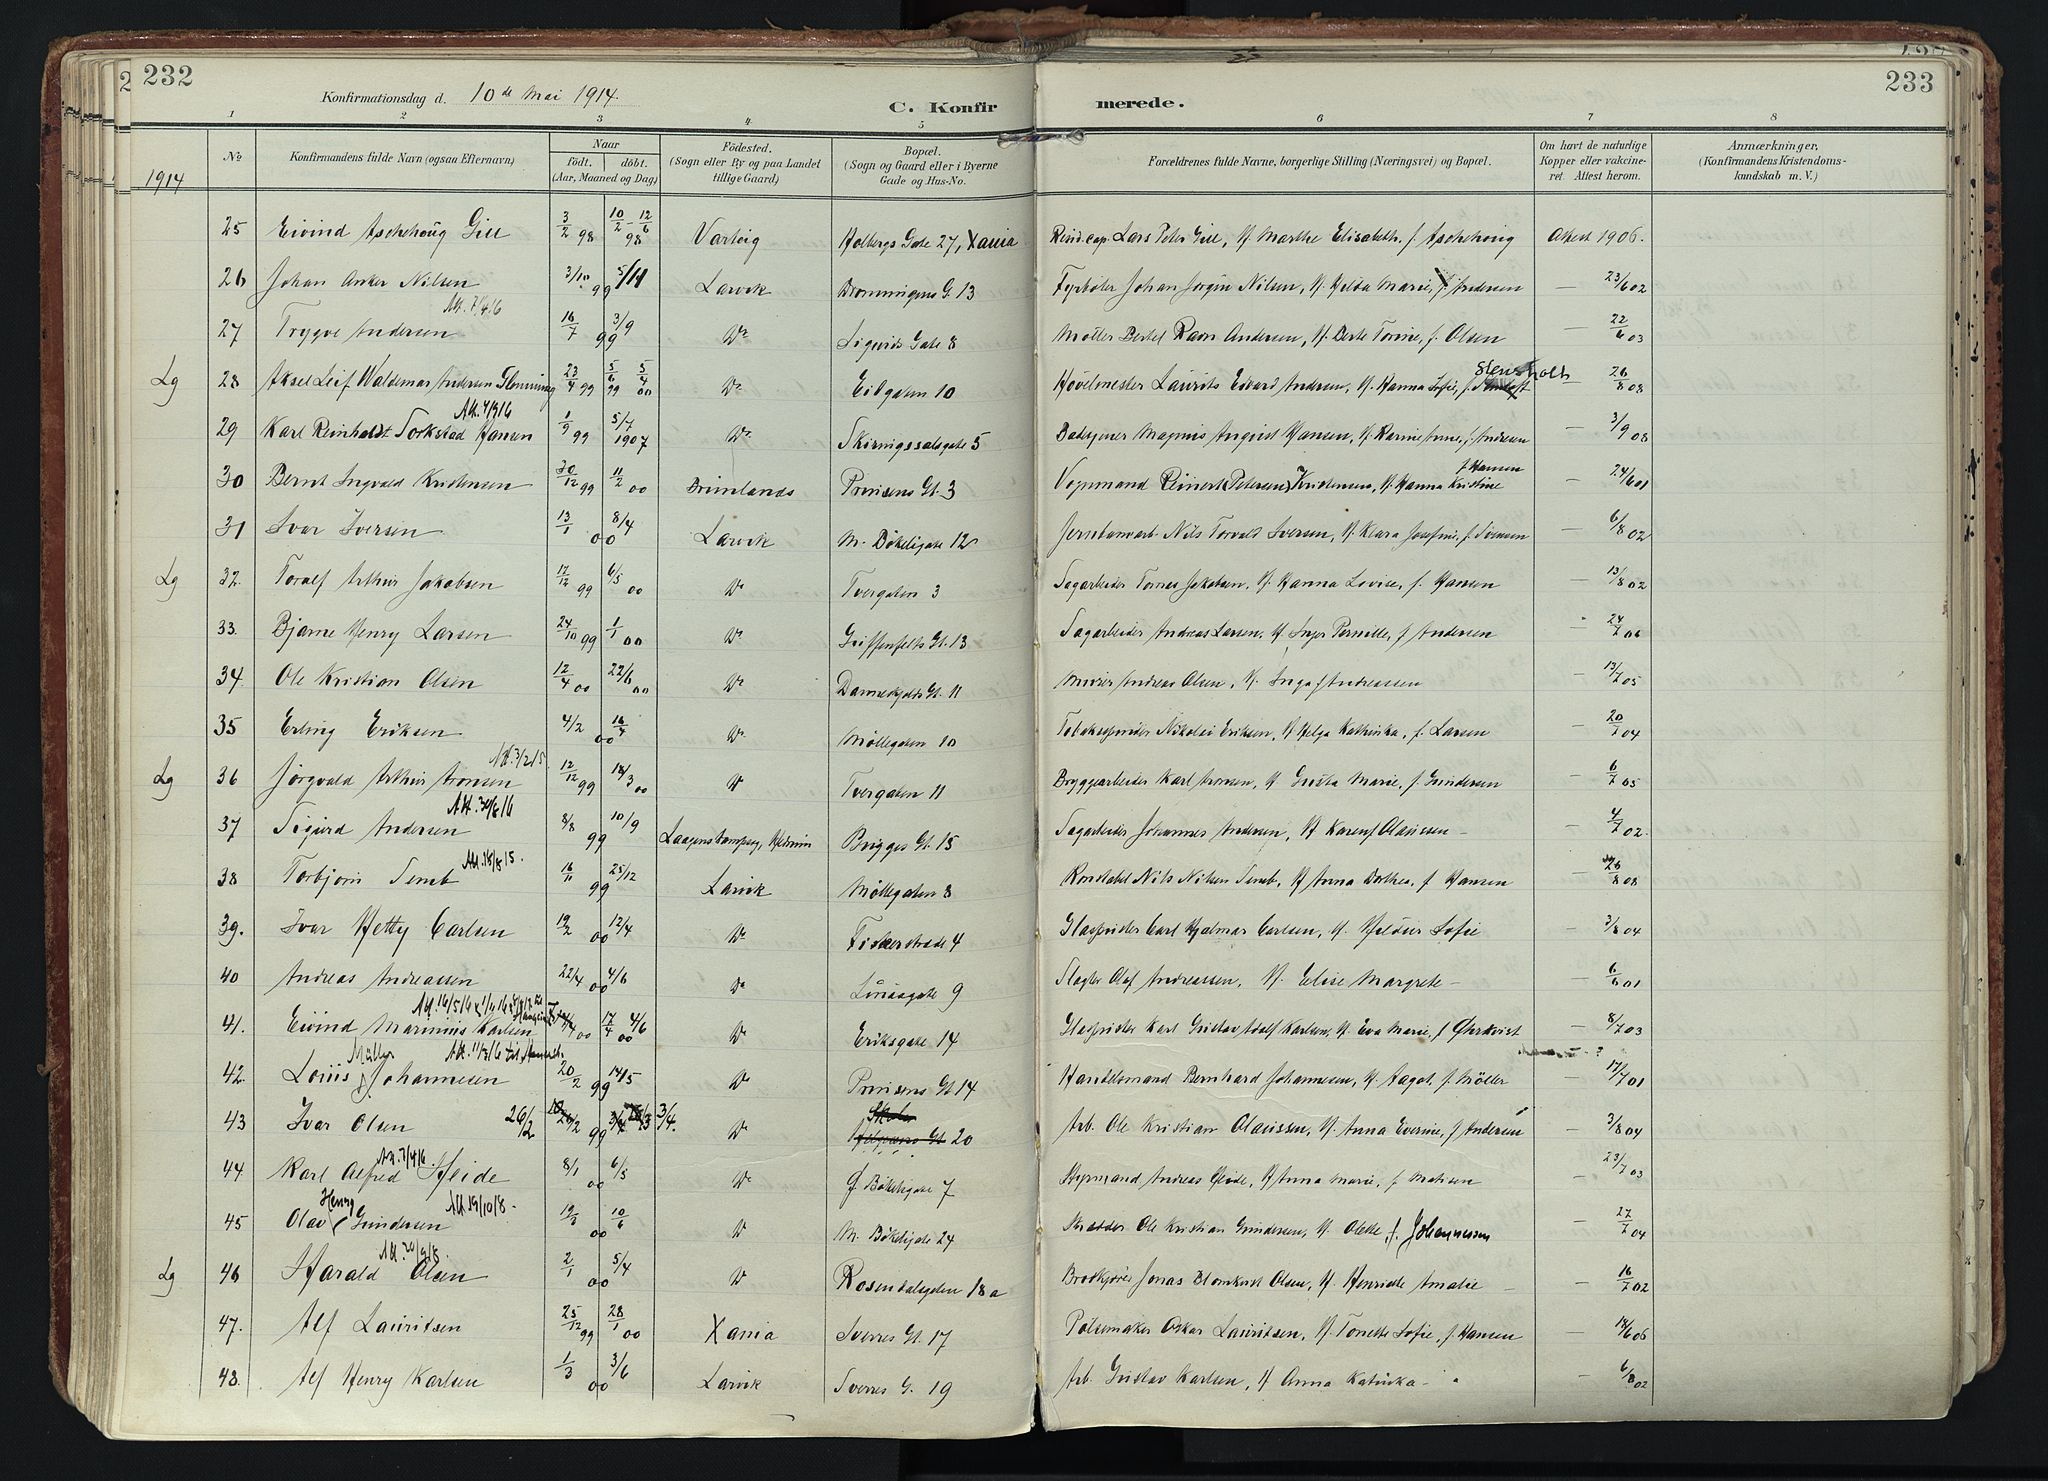 232
233
Konfirmationsdag d. 10de Mai 1914.
C. Konfirmerede.
1 2 3 4 5 6 7 8
No
Konfirmandens fulde Navn (ogsaa Efternavn)
Naar
født. døbt.
(Aar, Maaned og Dag)
Fødested.
(Sogn eller By og paa Landet
tillige Gaard)
Bopæl.
(Sogn og Gaard eller i Byerne
Gade og Hus-No.
Forældrenes fulde Navne, borgerlige Stilling (Næringsvei) og Bopæl.
Om havt de naturlige
Kopper eller vakcine-
ret. Attest herom.
Anmærkninger,
(Konfirmandens Kristendoms-
kundskab m. V.)
1914
25 Eivind Aschehoug Gill 3/2 98 10/2 - 12/6 98 Holbergs Gate 27, Xania Lars Peter Gill, H. Marthe Elisabeth f. Aschehoug Attest 1906.
26 Johan Anker Nilsen 3/10 99 5/11 Larvik Dronningens G. 13 Fyrbøter Johan Jørgen Nilsen, H. Hilda Marie, f. Andersen — 23/6 02
Att. 7/4 16
27 Trygve Andersen 16/7 99 3/9 Do Sigurds Gate 8 Møller Bertel Ravn Andersen, H. Berte Torine, f. Olsen — 22/6 03
Lg 28 Aksel Leif Waldemar Andersen Flemming 23/4 99 5/6 99 5/4 00 Do Eilgaten 10 Høvelmester Laurits Edvard Andersen, H. Hanna Sofie, f. Stensholt — 26/8 08
29 Karl Reinholdt Torkstad Hansen 1/9 99 5/7 1907 Do Skiringssalsgate 5 Magnus August Hansen, H. Karine Anne, f. Andresen — 3/9 08
30 Bernt Ingvald Kristensen 30/12 99 11/2 00 Brunlanes Prinsens Gt. 3 Vognmand Reinert (Petersen) Kristensen, H. Hanna Kristine f. Hansen — 24/6 01
31 Ivar Iversen 13/1 00 8/4 Larvik M. Bøkeligate 12 Jernbanearb. Nils Torvald Iversen, H. Klara Josefine, f. Sørensen — 6/8 02
Lg 32. Toralf Arthur Jakobsen 17/12 99 6/5 00 Do Tvergaten 3 Sagarbeider Tornes Jakobsen, H. Hanna Lovise, f. Hansen — 13/8 02
33. Bjarne Henry Larsen 24/10 99 1/1 00 Do Griffenfelts Gt. 13 Sagarbeider Andreas Larsen, H. Inger Pernille, f. Andersen — 24/7 06
34. Ole Kristian Olsen 12/4 00 22/6 00 Do Danneskjolds Gt. 11 Murer Andreas Olsen, H. Inga f. Andreassen — 13/7 05
35 Erling Eriksen 4/2 00 16/4 Do Møllegaten 10 Tobaksspinder Nikolai Eriksen, H. Helga Kathinka, f. Larsen — 20/7 04
Att. 3/2 15.
Lg 36 Jørgvald Arthur Aronsen 12/12 99 18/3 00 Do Tvergaten 11 Bryggearbeider Karl Aronsen, H. Gusta Marie, f. Gundersen — 6/7 05
37 Sigurd Andersen 8/8 99 10/9 Laagens Tømmesg, Hedrum Brigges Gt. 15 Sagarbeider Johannes Andersen, H. Karen f. Olaussen — 4/7 02.
Att. 18/8 15.
38 Torbjørn Semb 16/11 99 25/12 Larvik Møllegaten 8 Konstabel Nils Nilsen Semb, H. Anna Dorthea, f. Hansen — 26/8 08
39. Ivar Hetty Carlsen 19/2 00 12/4 Do Fiskerstræde 4 Glaspuster Carl Hjalmar Carlsen, H. Hildur Sofie — 3/8 04
40 Andreas Andreassen 22/4 00 4/6 Do Linaagate 9 Slagter Olaf Andreassen, H. Elise Margrete — 6/6 01
41. Eivind Marinius Karlsen 00 17/4 00 4/6 Do Eriksgate 14 Glaspuster Karl Gustav Adolf Karlsen, H. Eva Marie, f. Øhrkvist — 8/7 03
Müller Att. 11/3 16
42. Louis Johannesen 20/2 99 14/5 Do Prinsens Gt 14 Handelsmand Bernhard Johannesen, H. Aagot, f. Møller — 17/7 01
43 Ivar Olsen 26/2 26/2 99 3/4. Do 20 Arb. Ole Kristian Olaussen, H. Anna Evensine, f. Andersen — 3/8 04
Att. 7/4 16.
44 Karl Alfred Heide 8/1 00 6/5 Do Ø. Bøkeligate 7 Styrmand Andreas Heide, H. Anna Marie, f. Madsen — 23/7 03
Henry Att 19/10 18.
45 Olav Gundersen 19/3 00 10/6 Do M. Bøkeligate 24 Skrædder Ole Kristian Gundersen, H. Olette, f. Johannessen — 27/7 04
Lg 46 Harald Olsen 2/1 00 5/4 Do Rosendalsgaten 18a Brødkjører Jonas Blomkvist Olsen, H. Henriette Amalie — 16/7 02
47. Alf Lauritsen 25/12 99 28/1 00 Xania Sverres Gt. 17 Pølsemaker Oskar Lauritsen, H. Tonette Sofie, f. Hansen — 18/6 06
48. Alf Henry Karlsen 1/3 00 3/6 Larvik Sverres G. 19 Arb. Gustav Karlsen, H. Anna Katinka — 6/8 02